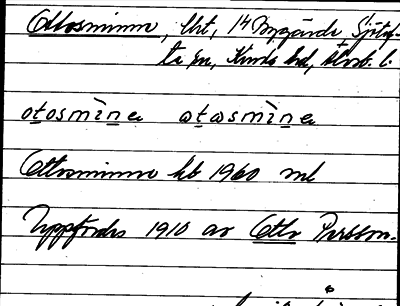 Ottosminne, lht, 1⁴ Bygärde, Sjötof-
ta sn, Kinds hd, Älvsb. l.
otosmìne ɷtɷsmìne
Ottosminne hb 1960 ml
Uppfördes 1910 av Otto Persson.